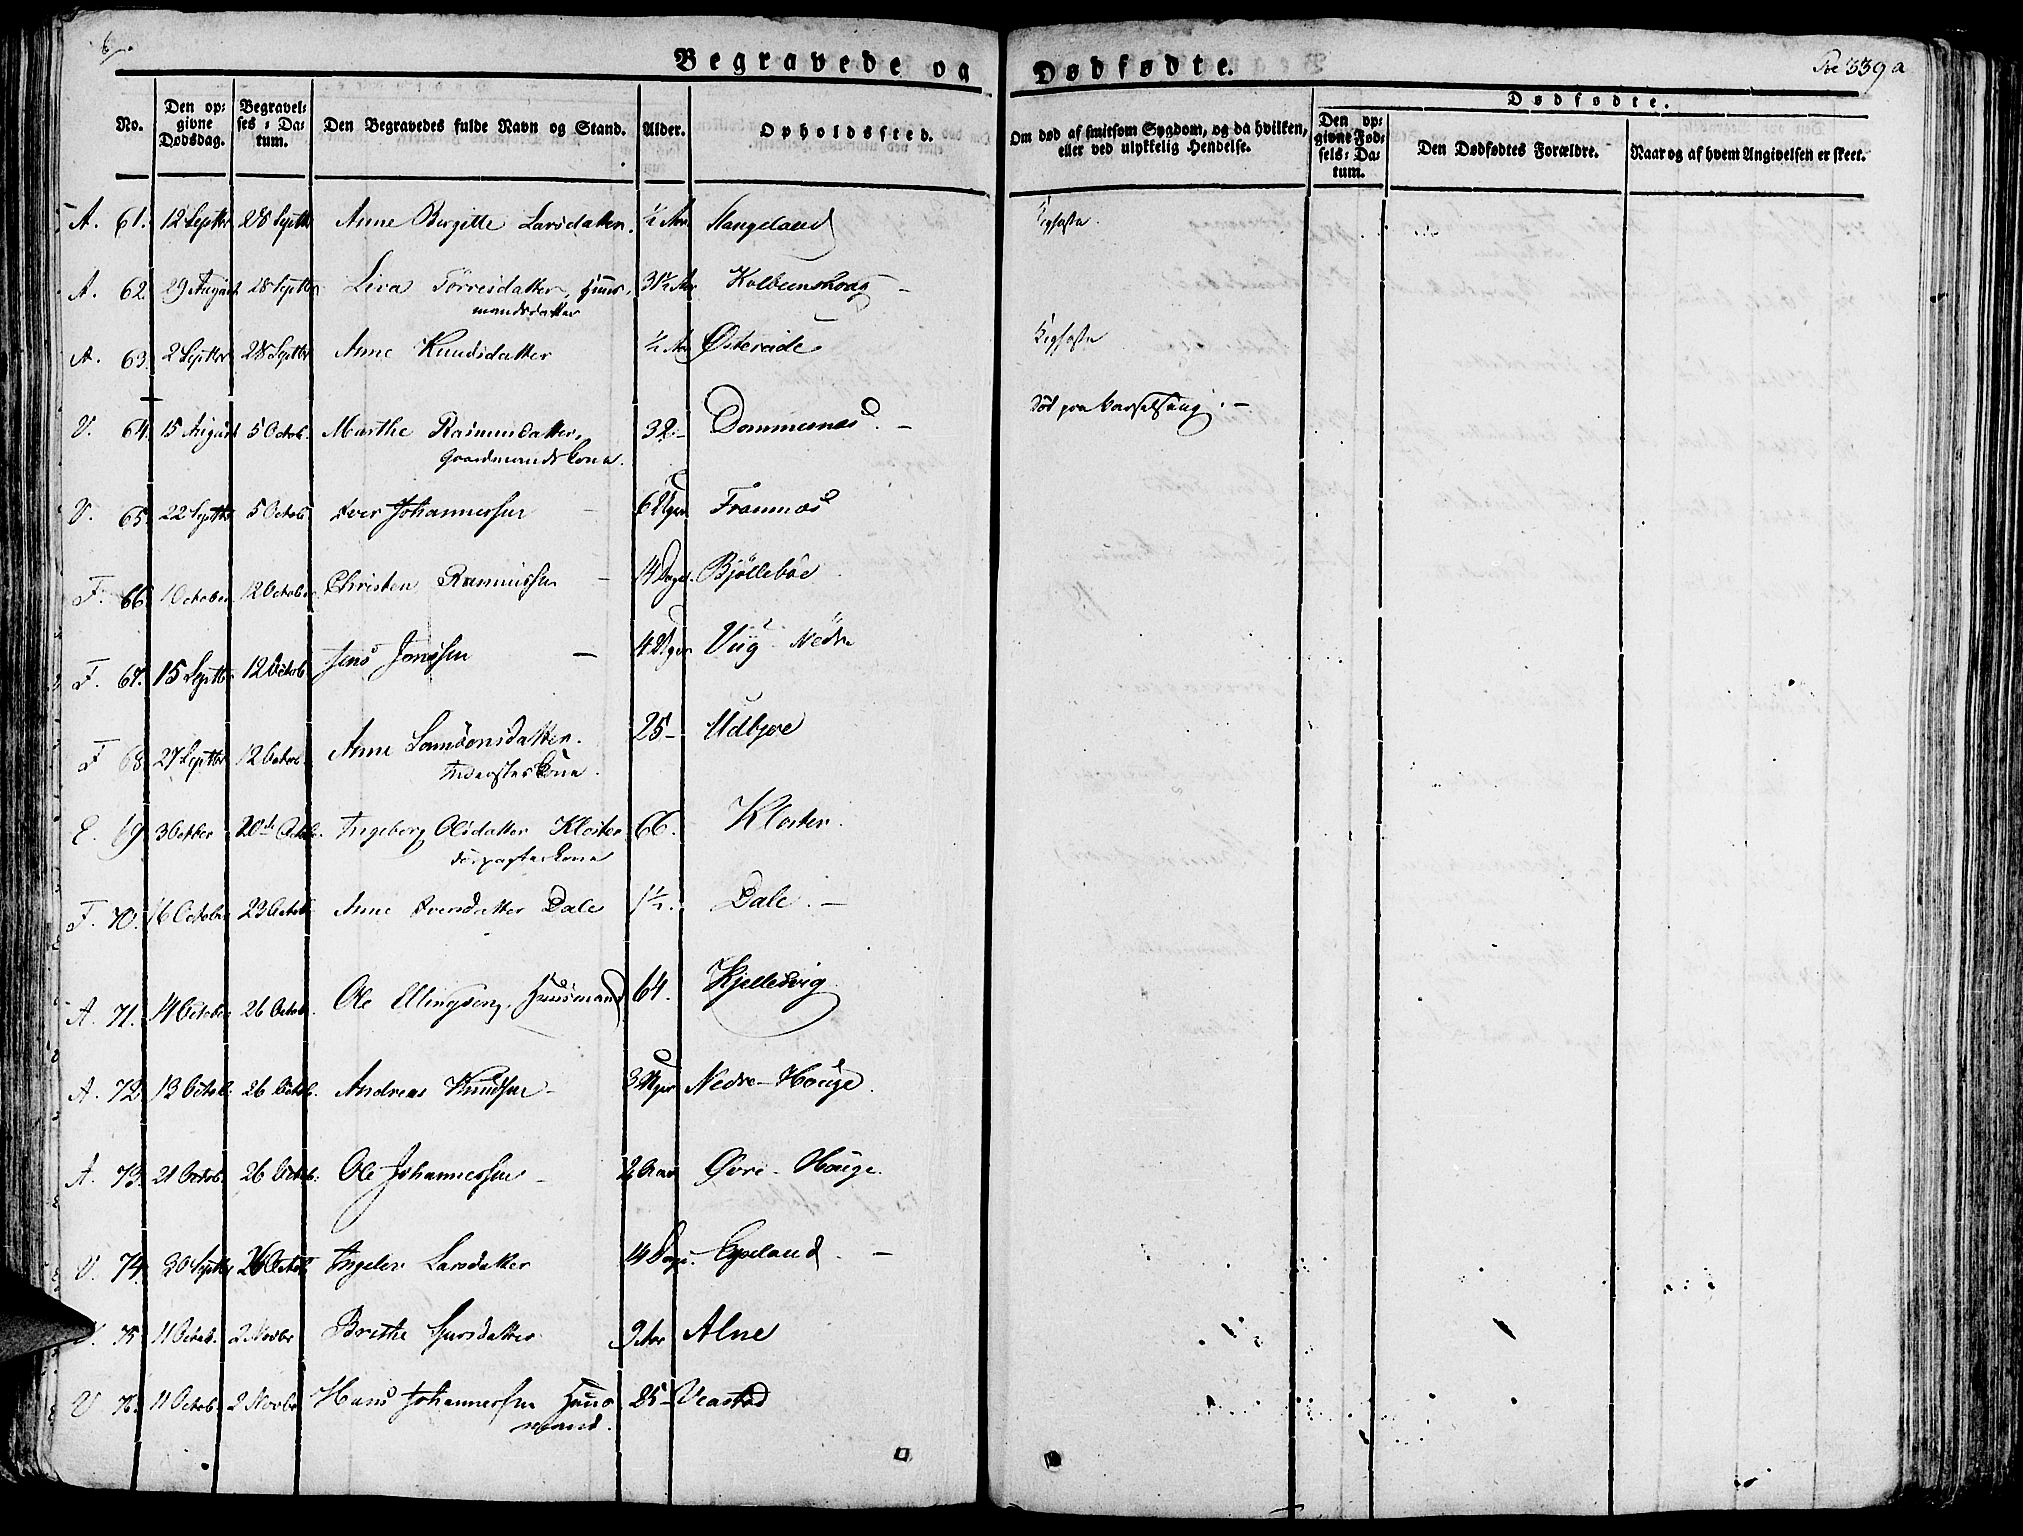 Begravede og Dødfødte.
339 a
No. Den opgivne Dødsdag. Begravelses-Datum. Den Begravedes fulde Navn og Stand. Alder. Opholdssted. Om død af smitsom Sygdom, og da hvilken, eller ved ulykkelig Hendelse. Dødfødte. Den opgivne Fødsels-Datum. Den Dødfødtes Forældre. Naar og af hvem Angivelsen er skeet.
A. 61. 12 Septbr 28 Septbr Anne Birgitte Larsdatter. ½ Aar Stangeland Kighoste.
A. 62. 29 August 28 Septbr Liva Torresdatter, Huus- 31½ Aar Kolbeenshoug –
mandsdatter
A. 63. 2 Septbr 28 Septbr Anne Knudsdatter ½ Aar Østereide Kighoste
V. 64. 15 August 5 Octob. Marthe Rasmusdatter, 32 – Dommesnes. – død paa Barselseng. –
Gaardmandskone.
V. 65. 22 Septbr 5 Octob Iver Johannessen – 6 Uger Framnæs
F. 66. 1 October 12 October Christen Rasmussen – 14 Dage. Bjøllebøe
F. 67. 15 Septbr 12 Octob. Jens Jonssen – 4 Uger Viig Nedre
F. 68. 27 Septbr 12 Octob. Anne Samsonsdatter. 25 – Udbjoe
Inderstes kone.
E. 69. 3 October 20de Octob. Ingeborg Olsdatter Kloster 66. Kloster.
F. 70. 16 October 23 Octob Anne Iversdatter Dale 1½. Dale. –
A. 71. 14 October 26 Octob. Ole Ellingsen, Huusmand 64. Kjellesvig
A. 72. 13 Octob. 26 Octob. Andreas Knudsen – 3 Uger Nedre-Houge.
A. 73. 21 Octob. 26 Octob. Ole Johannessen – 2 Aar Øvre-Houge.
V. 74. 30 Septbr 26 Octob Ingeber Larsdatter 14 Dage. Epeland. –
V. 75. 11 Octob. 2 Novbr Brithe Sjursdatter 9 Aar Alne
V. 76. 11 Octob. 2 Novbr Hans Johannessen Huus- 25 – Veastad
mand.